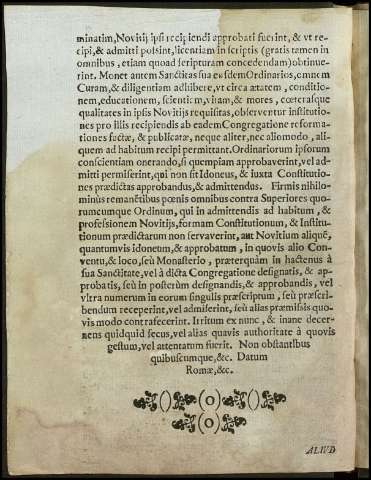 minatim, Novitij ipsi recipiendi approbati fuerint, & vt re-
cipi, & admitti possint, licentiam in scriptis (gratis tamen in
omnibus, etiam quoad scripturam concedendam) obtinue-
rint. Monet autem Sanctitas sua eosdem Ordinarios, omnem
Curam, & diligentiam adhibere, vt circa ætatem, conditio-
nem, educationem, scientiam, vitam, & mores, cæterasque
qualitates in ipsis Novitijs requisitas, observentur institutio-
nes pro illis recipiendis ab eadem Congregatione reforma-
tiones factæ, & publicatæ, neque aliter, nec aliomodo, ali-
quem ad habitum recipi permittant. Ordinariorum ipsorum
conscientiam onerando, si quempiam approbaverint, vel ad-
mitti permiserint, qui non sit Idoneus, & iuxta Constitutio-
nes prædictas approbandus, & admittendus. Firmis nihilo-
minùs remanẽtibus pœnis omnibus contra Superiores quo-
rumcumque Ordinum, qui in admittendis ad habitum, &
professionem Novitijs, formam Constitutionum, & Institu-
tionum prædictarum non servaverint, aut Novitium aliquẽ,
quantumvis idoneum, & approbatum, in quovis alio Con-
ventu, & loco, seù Monasterio, præterquàm in hactenus à
sua Sanctitate, vel à dicta Congregatione designatis, & ap-
probatis, seù in posterùm designandis, & approbandis, vel
vltra numerum in eorum singulis præscriptum, seù præscri-
bendum receperint, vel admiserint, seù alias præmissis quo-
vis modo contrafecerint. Irritum ex nunc, & inane decer-
nens quidquid secus, vel alias quavis authoritate à quovis
gestum, vel attentatum fuerit. Non obstantibus
quibuscumque, &c. Datum
Romæ, &c.
()(o)()
(o)
ALIVD